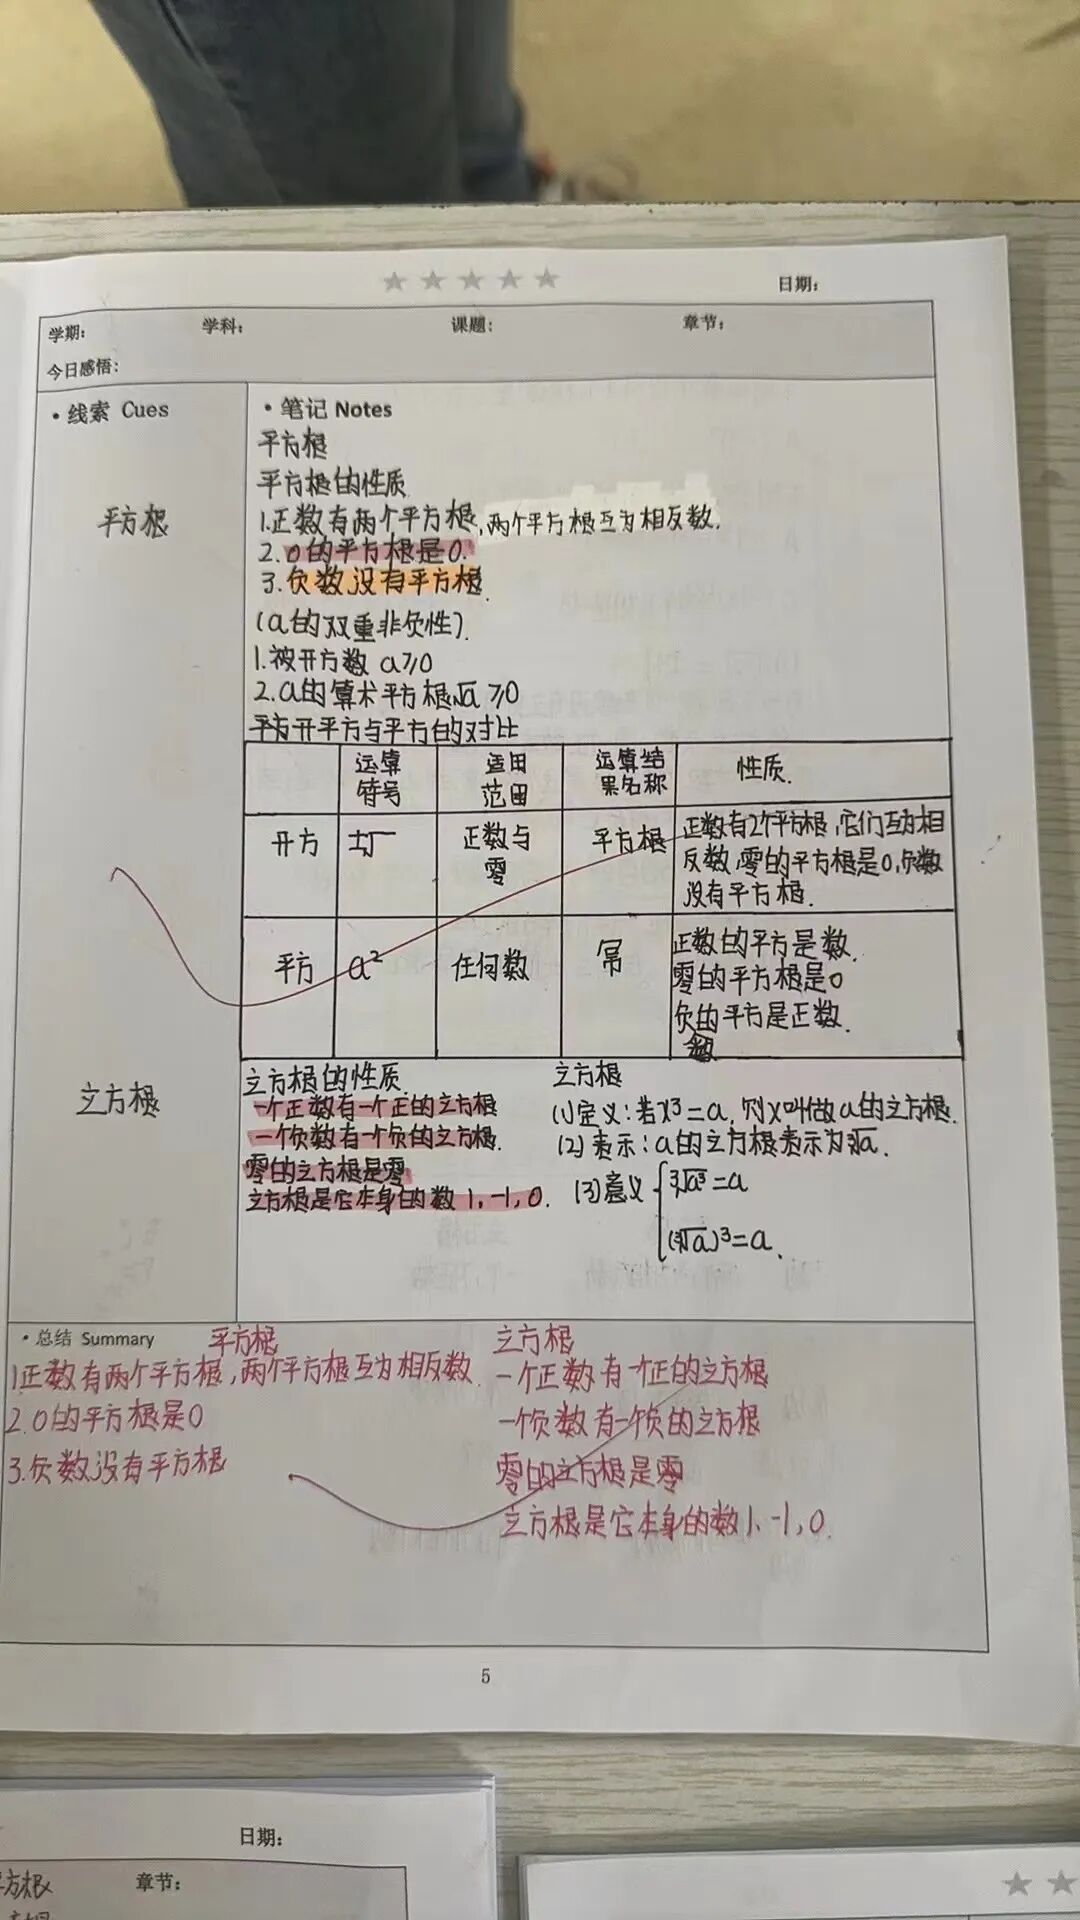 日期:
学期:
学科:
课题:
章节:
今日感悟:
• 线索 Cues
平方根
立方根
• 笔记 Notes
平方根
平方根的性质
1.正数有两个平方根,两个平方根互为相反数.
2.0的平方根是0.
3.负数没有平方根.
(a的双重非负性).
1.被开方数a≥0
2.a的算术平方根√a≥0
平方开平方与平方的对比
运算符号
适用范围
运算结果名称
性质.
开方
±√
正数与零
平方根
正数有2个平方根,它们互为相
反数,零的平方根是0,负数
没有平方根.
平方
a²
任何数
幂
正数的平方是数.
零的平方根是0
负的平方是正数.
数
立方根的性质
一个正数有一个正的立方根
一个负数有一个负的立方根.
零的立方根是零
立方根是它本身的数1,-1,0.
立方根
(1)定义:若x³=a,则x叫做a的立方根.
(2)表示:a的立方根表示为∛a.
(3)意义
∛a³=a
(∛a)³=a.
• 总结 Summary
平方根
1.正数有两个平方根,两个平方根互为相反数
2.0的平方根是0
3.负数没有平方根
立方根
一个正数有一个正的立方根
一个负数有一个负的立方根
零的立方根是零
立方根是它本身的数1、-1,0.
5
日期:
章节:
平方根